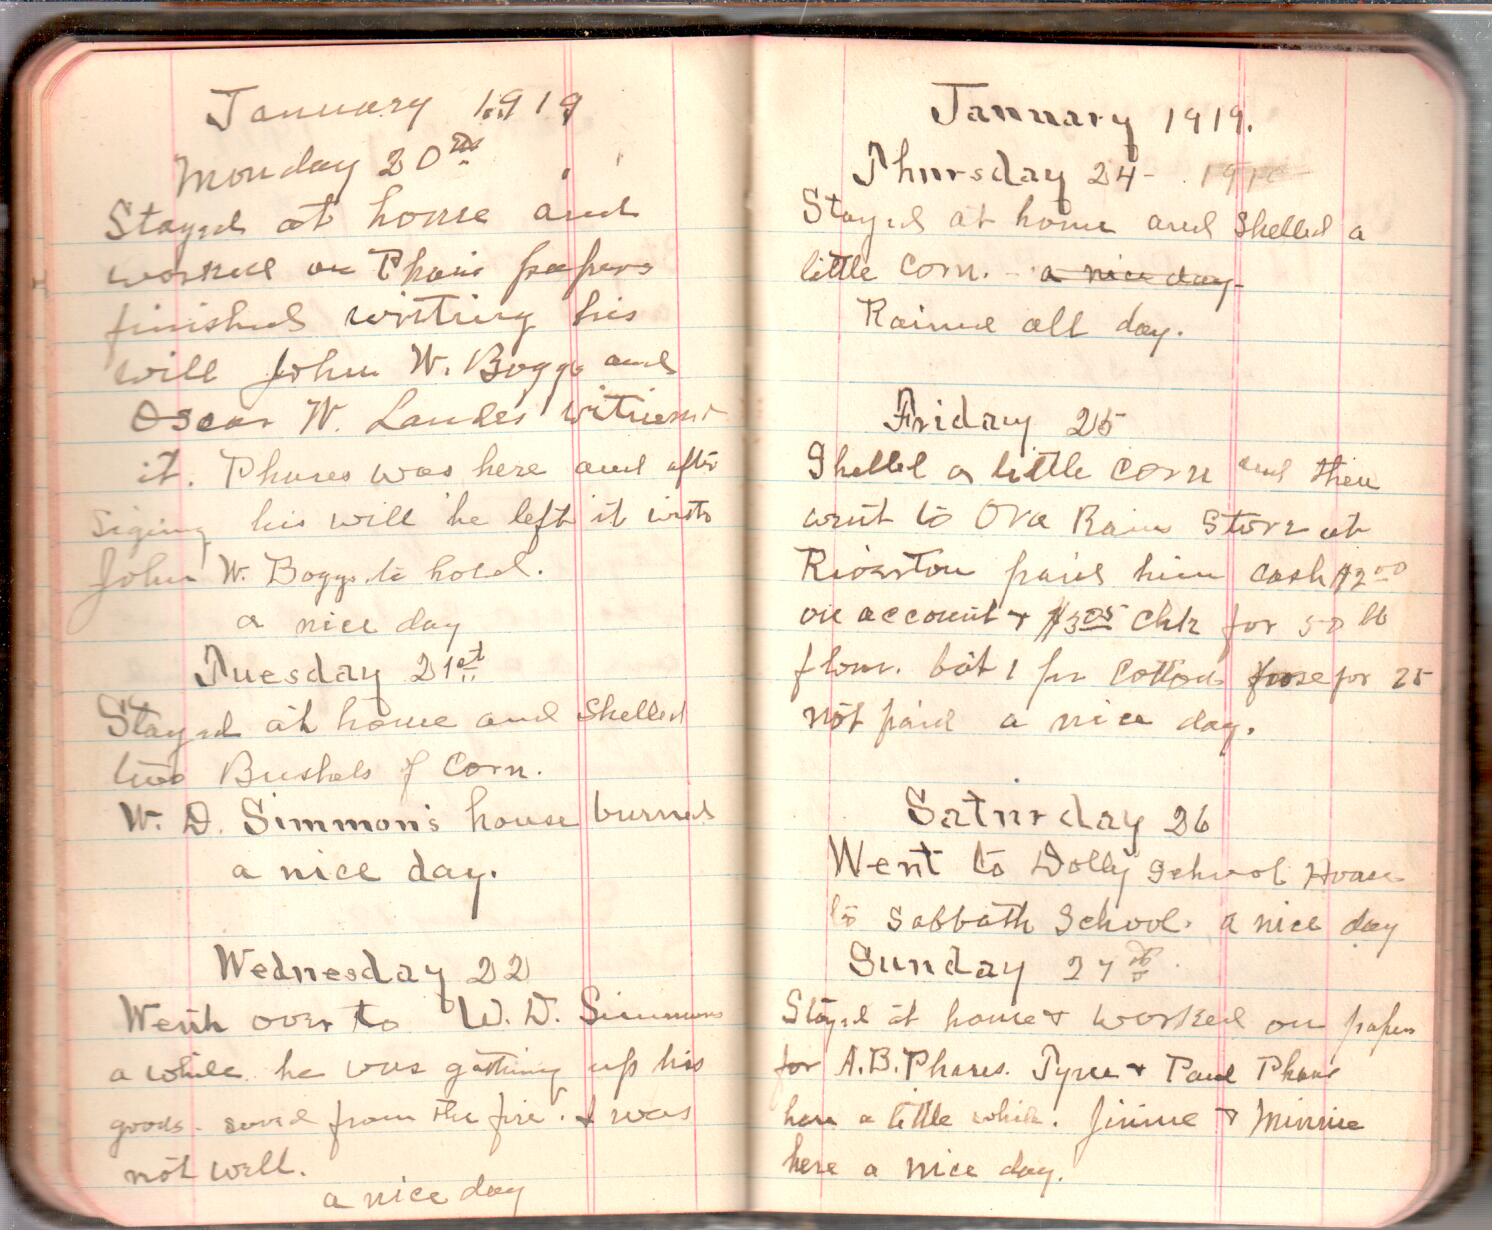 January 1919
Monday 20th
Stayed at home and
worked on Phares papers
finished writing his
will John W. Boggs and
Oscar W. Landes witness
it. Phares was here and after
Signing his will he left it with
John W. Boggs to hold.
a nice day
Tuesday 21st
Stayed at home and Shelled
two Bushels of Corn.
W. D. Simmon's house burned
a nice day.
Wednesday 22
Went over to W. D. Simmons
a while he was gathring up his
goods. saved from the fire. I was
not well.
a nice day
January 1919.
Thursday 24-
Stayed at home and Shelled a
little Corn. - a nice day-
Rained all day.
Friday 25
Shelled a little Corn and then
went to Ova Rains Store at
Riverton paid him Cash $2.00
on account + $3.25 Chk for 50 lb
flour. bot 1 pr Cotton hose for 25
not paid a nice day.
Saturday 26
Went to Dolly School House
to Sabbath School. a nice day
Sunday 27th
Stayed at home + worked on papers
for A.B. Phares. + Paul Phares
here a little while. Jinnie + Minnie
here a nice day.